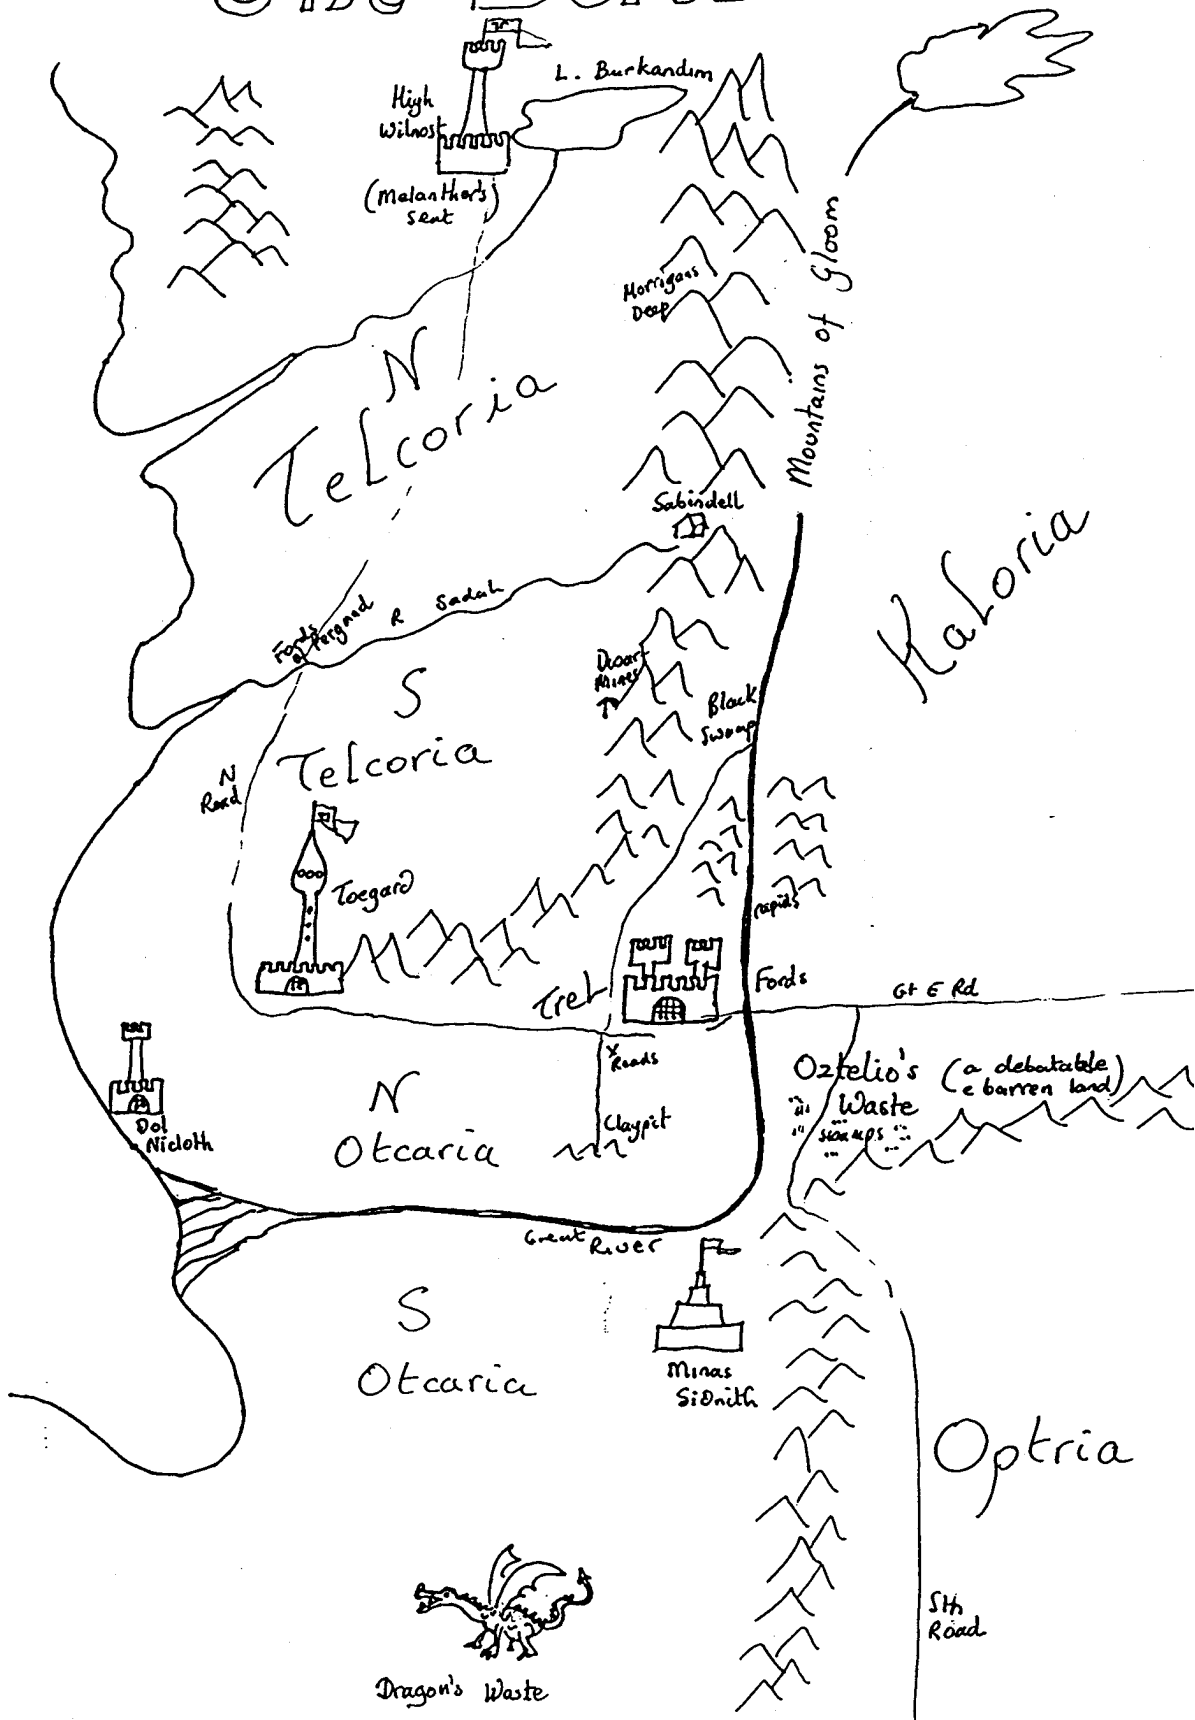 L. Burkandim
High
Wilnost
(Melanther's
seat
Morrigans
Deep
Mountains of Gloom
N
Telcoria
Sabindell
Kaloria
Fords
of Fergnad
R Sadah
S
Telcoria
Dwarf
Mines
Black
Swamp
N
Road
Toegard
rapids
Tret
Fords
Gt E Rd
X
Roads
Oztelio's
Waste
swamps
(a debatable
& barren land)
Dol
Nicloth
N
Otcaria
Claypit
Great River
S
Otcaria
Minas
Sidnith
Optria
Sth
Road
Dragon's Waste